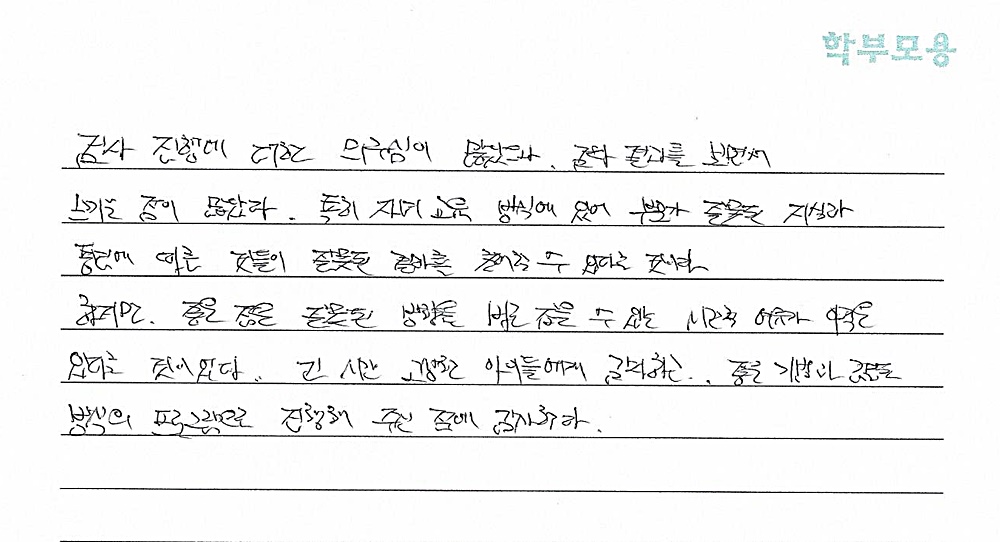 학부모용
검사 진행에 대한 의구심이 많았으나, 검사 결과를 보면서
느끼는 점이 많았다. 특히 자녀 교육 방식에 있어 부모가 잘못된 지식과
통념에 따른 것들이 잘못된 결과를 줄 수 있다는 것이다
하지만, 좋은 점은 잘못된 방향을 바로 잡을 수 있는 시간적 여유가 아직은
있다는 것이었다.. 긴 시간 고생한 아이들에게 감사하고.., 좋은 기법과
방식의 프로그램으로 진행해 주신 점에 감사하다.